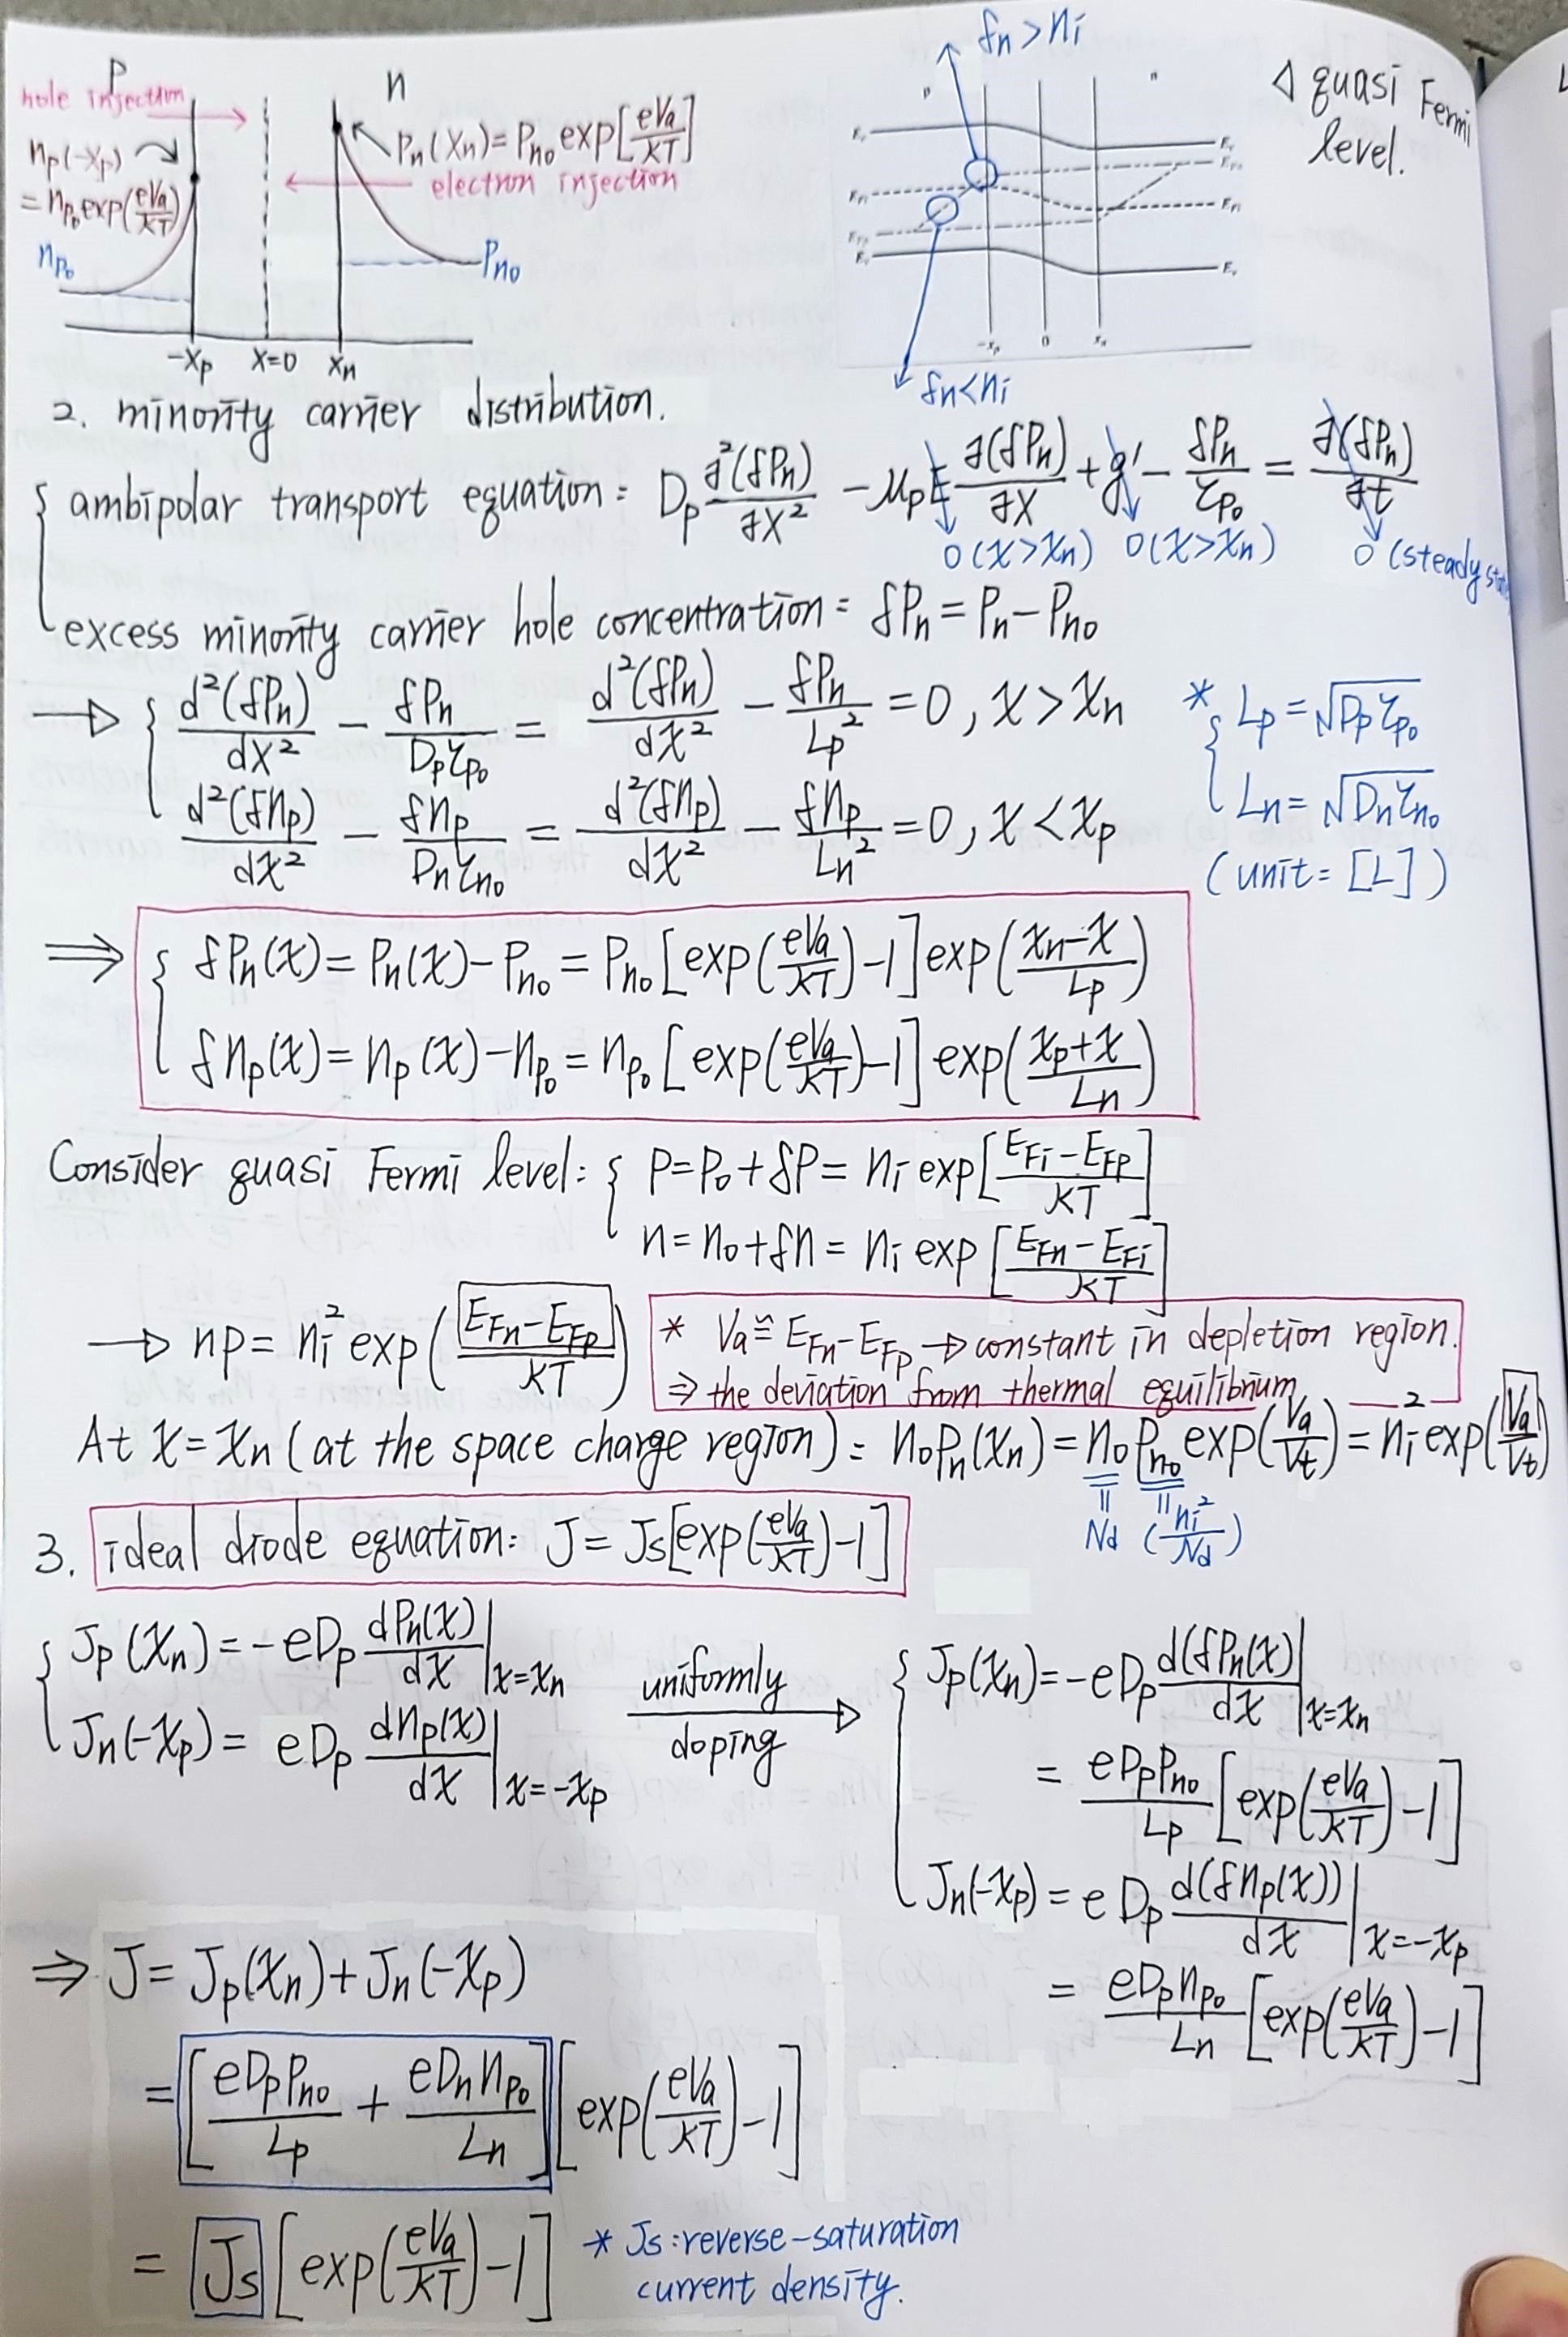 P
n
hole injection
nₚ(-xₚ)
= nₚ₀ exp(eVa/kT)
Pn(xn) = Pn₀ exp[eVa/kT]
electron injection
nₚ₀
Pn₀
-xₚ x=0 xn
δn > ni
p
n
-xₚ 0 xn
δn < ni
△ quasi Fermi
level.
2. minority carrier distribution.
{ ambipolar transport equation = Dp ∂²(δPn)/∂x² - μp E ∂(δPn)/∂x + g' - δPn/τp₀ = ∂(δPn)/∂t
0 (x > xn) 0 (x > xn) 0 (steady
excess minority carrier hole concentration = δPn = Pn - Pn₀
→ { d²(δPn)/dx² - δPn/Dpτp₀ = d²(δPn)/dx² - δPn/Lp² = 0, x > xn
d²(δnp)/dx² - δnp/Dnτn₀ = d²(δnp)/dx² - δnp/Ln² = 0, x < xp
* { Lp = √Dpτp₀
Ln = √Dnτn₀
(unit = [L])
⇒ { δPn(x) = Pn(x) - Pn₀ = Pn₀ [exp(eVa/kT) - 1] exp(xn-x/Lp)
δnp(x) = np(x) - np₀ = np₀ [exp(eVa/kT) - 1] exp(xp+x/Ln)
Consider quasi Fermi level = { P = P₀ + δP = ni exp[EFi-EFp/kT]
n = n₀ + δn = ni exp[EFn-EFi/kT]
→ np = ni² exp(EFn-EFp/kT)
* Va ≅ EFn-EFp → constant in depletion region.
⇒ the deviation from thermal equilibrium
At x = xn (at the space charge region) = n₀Pn(xn) = n₀Pn₀ exp(Va/Vt) = ni² exp(Va/Vt)
= =
Nd (ni²/Nd)
3. ideal diode equation: J = Js[exp(eVa/kT) - 1]
{ Jp(xn) = -eDp dPn(x)/dx |x=xn
Jn(-xp) = eDp dnp(x)/dx |x=-xp
uniformly
doping
{ Jp(xn) = -eDp d(δPn(x)/dx |x=xn
= eDpPn₀/Lp [exp(eVa/kT) - 1]
Jn(-xp) = eDp d(δnp(x))/dx |x=-xp
= eDpnp₀/Ln [exp(eVa/kT) - 1]
⇒ J = Jp(xn) + Jn(-xp)
= [eDpPn₀/Lp + eDnnp₀/Ln] [exp(eVa/kT) - 1]
= Js [exp(eVa/kT) - 1]
* Js: reverse-saturation
current density.